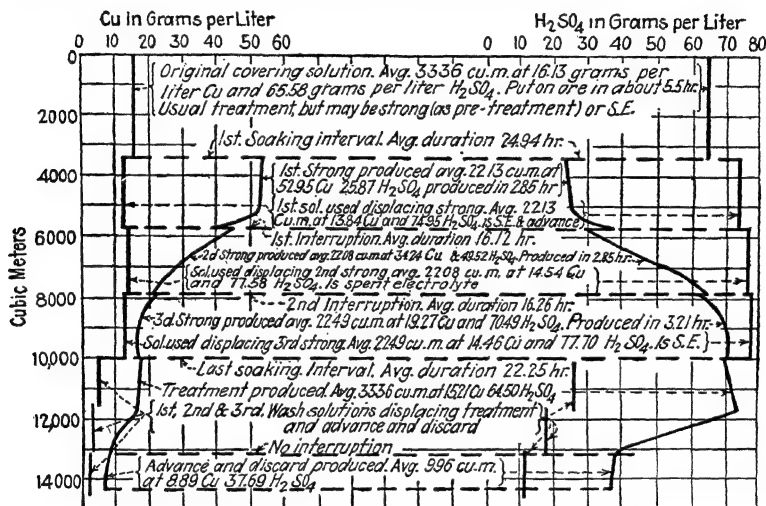 Cu in Grams per Liter
H2SO4 in Grams per Liter
0 10 20 30 40 50 60 0 10 20 30 40 50 60 70 80
0
2,000
4,000
6,000
8,000
10,000
12,000
14,000
Cubic Meters
Original covering solution. Avg. 3336 cu.m. at 16.13 grams per
liter Cu and 65.58 grams per liter H2SO4. Put on are in about 5.5 hr.
Usual treatment, but may be strong (as pre-treatment) or S.E.
1st. Soaking interval. Avg. duration 24.94 hr.
1st. Strong produced avg. 22.13 cu.m. at
52.95 Cu 25.87 H2SO4 produced in 2.85 hr.
1st. sol. used displacing strong. Avg. 22.13
Cu.m. at 13.84 Cu and 74.95 H2SO4 is S.E. & advance
1st. Interruption. Avg. duration 16.72 hr.
2d Strong produced avg. 2208 cu.m. at 34.24 Cu & 49.52 H2SO4. Produced in 2.85 hr.
Sol. used displacing 2nd strong avg. 2208 cu.m. at 14.54 Cu
and 77.58 H2SO4. Is spent electrolyte
2nd Interruption. Avg. duration 16.26 hr.
3d. Strong produced avg. 2249 cu.m. at 19.27 Cu and 70.49 H2SO4. Produced in 3.21 hr.
Sol. used displacing 3rd strong. Avg. 2249 cu.m. at 14.46 Cu and 77.70 H2SO4. is S.E.
Last soaking. Interval. Avg. duration 22.25 hr.
Treatment produced. Avg. 3336 cu.m. at 15.21 Cu 64.50 H2SO4
1st, 2nd & 3rd. Wash solutions displacing treatment
and advance and discard
No interruption
Advance and discard produced. Avg. 996 cu.m.
at 8.89 Cu 37.69 H2SO4